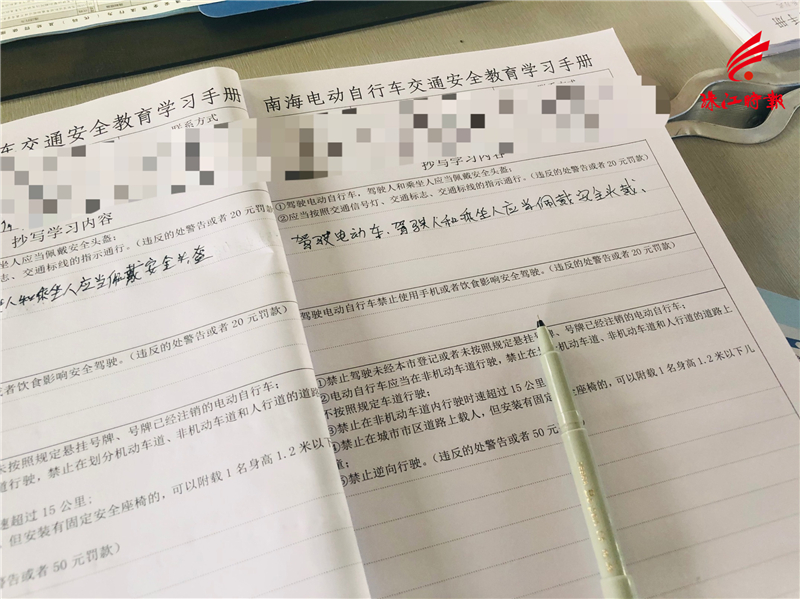 珠江时报
车交通安全教育学习手册
联系方式
抄写学习内容
坐人应当佩戴安全头盔;
志、交通标线的指示通行。(违反的处警告或者 20 元罚款)
人和乘坐人应当佩戴安全头盔
或者饮食影响安全驾驶。(违反的处警告或者 20 元罚款)
未按照规定悬挂号牌、号牌已经注销的电动自行车;
道行驶,禁止在划分机动车道、非机动车道和人行道的道路
速超过 15 公里;
,但安装有固定安全座椅的,可以附载 1 名身高 1.2 米以下
警告或者 50 元罚款)
南海电动自行车交通安全教育学习手册
抄写学习内容
①驾驶电动自行车,驾驶人和乘坐人应当佩戴安全头盔;
②应当按照交通信号灯、交通标志、交通标线的指示通行。(违反的处警告或者 20 元罚款)
驾驶电动车、驾驶人和乘坐人应当佩戴安全头
驾驶电动自行车禁止使用手机或者饮食影响安全驾驶。(违反的处警告或者 20 元罚款)
①禁止驾驶未经本市登记或者未按照规定悬挂号牌、号牌已经注销的电动自行车;
②电动自行车应当在非机动车道行驶,禁止在划分机动车道、非机动车道和人行道的道路上
不按照规定车道行驶;
③禁止在非机动车道内行驶时速超过 15 公里
④禁止在城市市区道路上载人,但安装有固定安全座椅的,可以附载 1 名身高 1.2 米以下儿
童;
⑤禁止逆向行驶。(违反的处警告或者 50 元